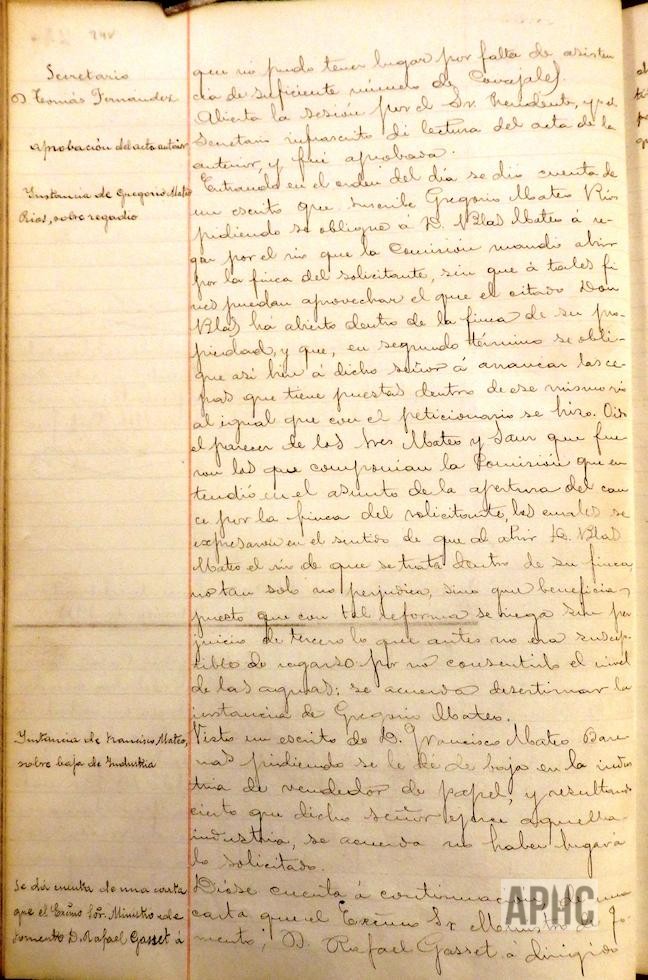 Secretario
D Tomás Fernández
Aprobación del acta anterior
Instancia de Gregorio Mateo
Rios, sobre regadio
Instancia de Francisco Mateo,
sobre baja de Industria
Se dá cuenta de una carta
que el Excmo Sor. Ministro de
Fomento D. Rafael Gasset á
que no pudo tener lugar por falta de asisten
cia de suficiente número de Concejales.
Abierta la sesión por el Sr. Presidente, y
Secretario infrascrito di lectura del acta de la
anterior, y fué aprobada.
Entrando en el orden del día se dio cuenta de
un escrito que suscribe Gregorio Mateo Rios
pidiendo se obligue á D. Blas Mateo á re-
gar por el rio que la Comisión mandó abrir
por la finca del solicitante, sin que á tales fi
nes puedan aprovechar el que el citado Don
Blas há abierto dentro de la finca de su pro
piedad, y que, en segundo término se obli-
gue asi bien á dicho señor á arrancar las ce-
pas que tiene puestas dentro de ese mismo rio
al igual que con el peticionario se hizo. Oido
el parecer de los Sres Mateo y Sanz que fue
ron los que componian la Comisión que en
tendió en el asunto de la apertura del cau
ce por la finca del solicitante, los cuales se
expresaron en el sentido de que al abrir D. Blas
Mateo el rio de que se trata dentro de su finca,
no tan solo no perjudica, sino que beneficia,
puesto que con tal reforma se riega sin per
juicio de tercero lo que antes no era suscep-
tible de regarse por no consentirlo el nivel
de las aguas; se acuerda desestimar la
instancia de Gregorio Mateo.
Visto un escrito de D. Francisco Mateo Bare
nas pidiendo se le dé de baja en la indus
tria de vendedor de papel, y resultando
cierto que dicho señor ejerce aquella
industria, se acuerda no haber lugar á
lo solicitado.
Dióse cuenta á continuación de una
carta que el Excmo Sr. Ministro de Fo
mento, D. Rafael Gasset á dirigido
APHC